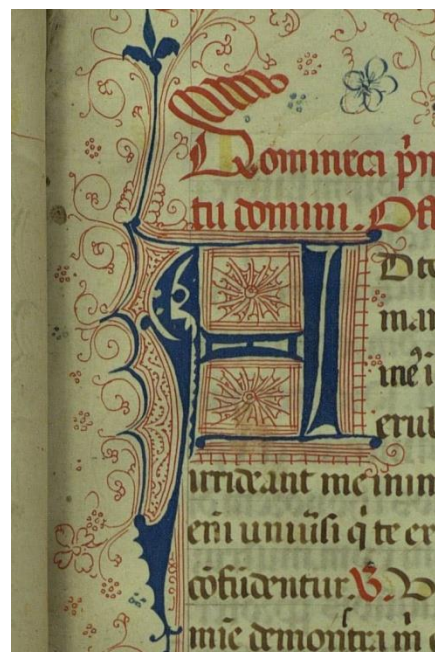 Dominica p̄n
tu domini. Off
AD te
mam
me᷑ i
erub
irrideant me inim
eni uniũsi q̇ te ex
cōfũdentur. V. V
mie demonstra m